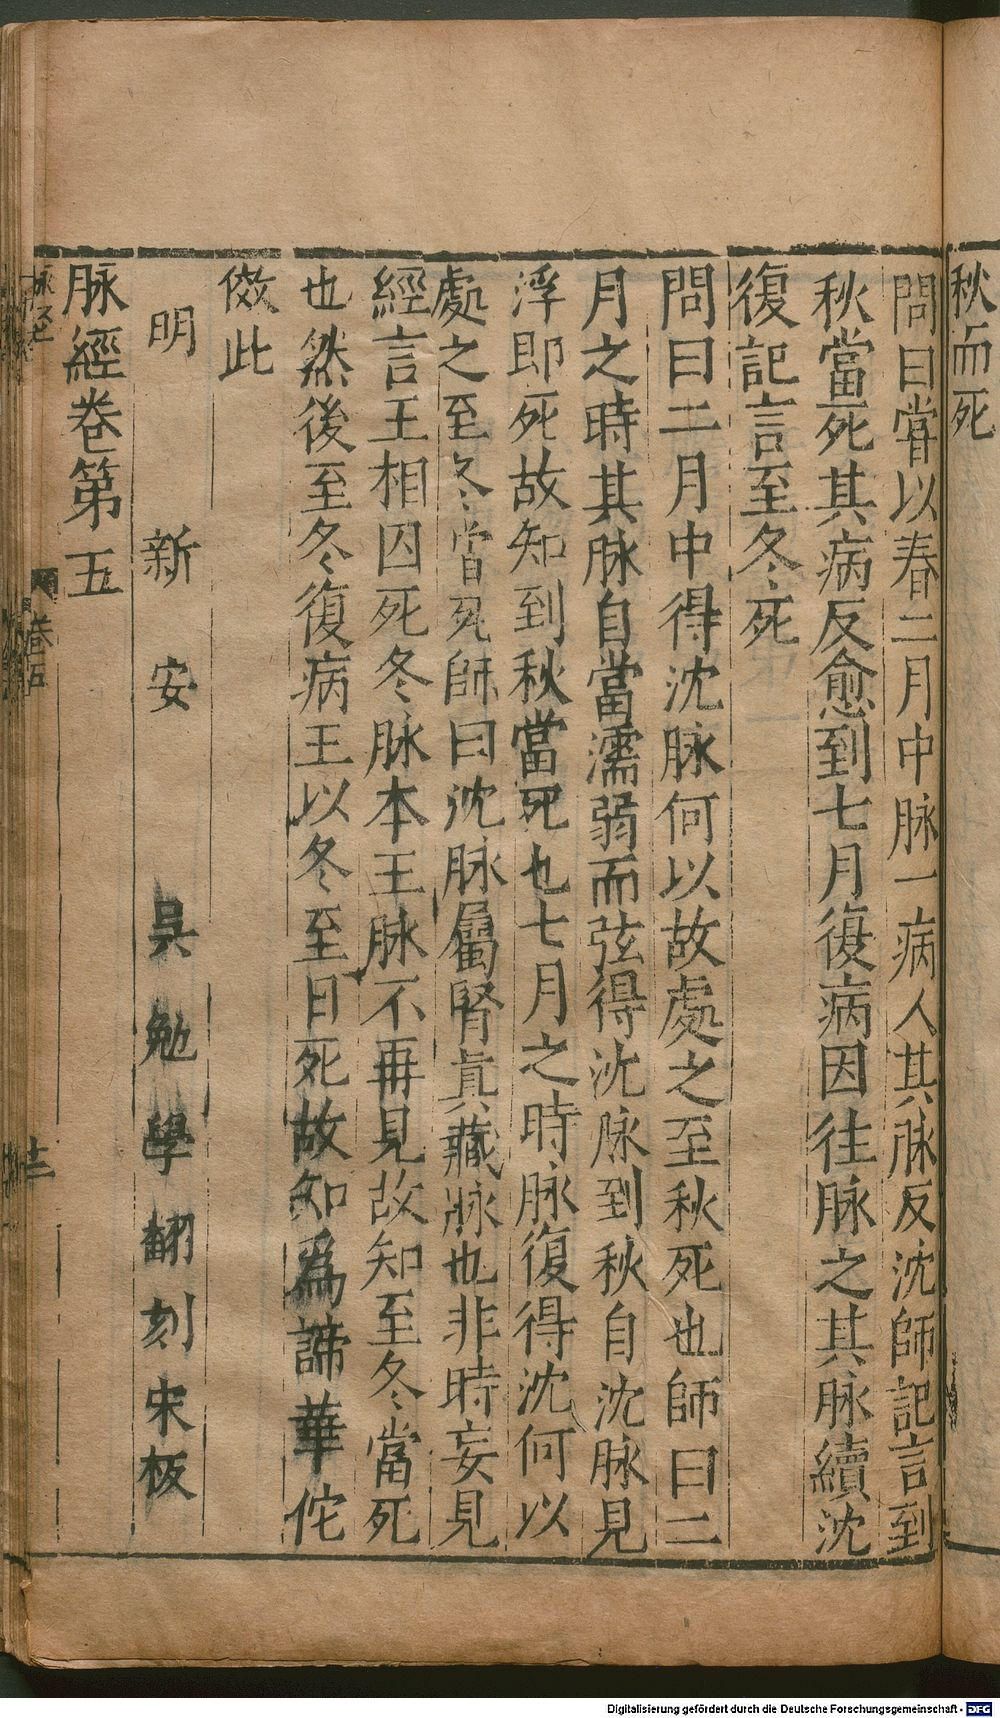 秋而死
問曰嘗以春二月中脉一病人其脉反沈師記言到
秋當死其病反愈到七月復病因往脉之其脉續沈
復記言至冬死
問曰二月中得沈脉何以故處之至秋死也師曰二
月之時其脉自當濡弱而弦得沈脉到秋自沈脉見
浮即死故知到秋當死也七月之時脉復得沈何以
處之至冬當死師曰沈脉屬腎真藏脉也非時妄見
經言王相囚死冬脉本王脉不再見故知至冬當死
也然後至冬復病王以冬至日死故知爲諦華佗
倣此
明 新安 吳勉學翻刻宋板
脉經卷第五
脉經 卷五 十二
Digitalisierung gefördert durch die Deutsche Forschungsgemeinschaft - DFG